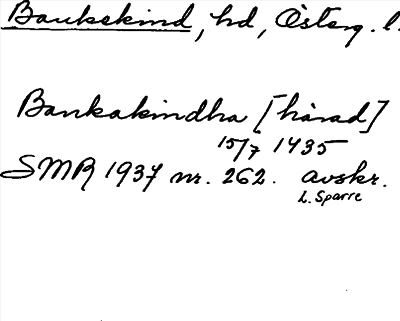 Bankekind, hd, Österg. l.
Bankakindha [härad]
15/7 1435
SMR 1937 nr. 262. avskr.
L. Sparre